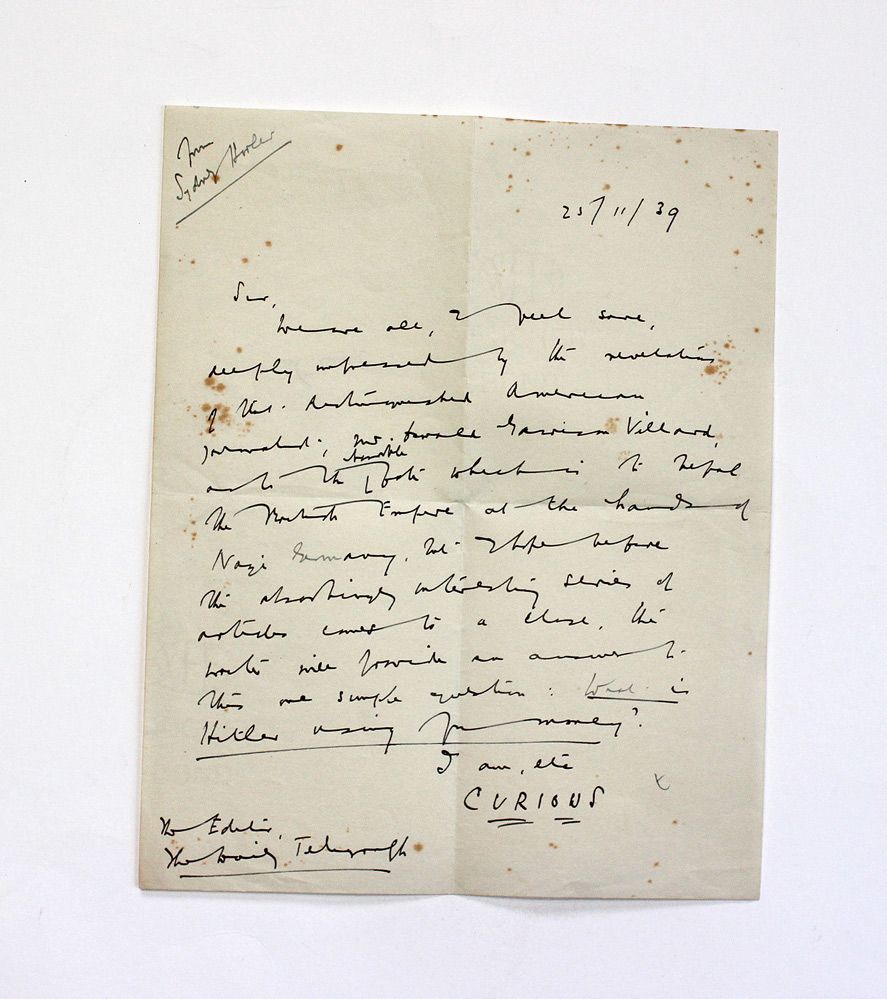 from
Sydney Horler
25/11/39
Sir,
We are all, I feel sure,
deeply impressed by the revelations
of that distinguished American
journalist, Mr. Oswald Garrison Villard,
as to the horrible fate which is to befal
the British Empire at the hands of
Nazi Germany, but I hope before
the absorbingly interesting series of
articles comes to a close, the
writer will provide an answer to
this one simple question: What is
Hitler using for money?
I am, etc
CURIOUS
The Editor,
The Daily Telegraph